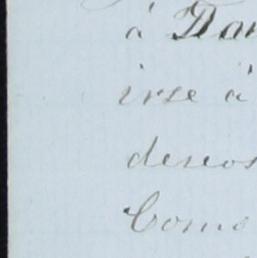 à Dan
irse à
deseos
Como